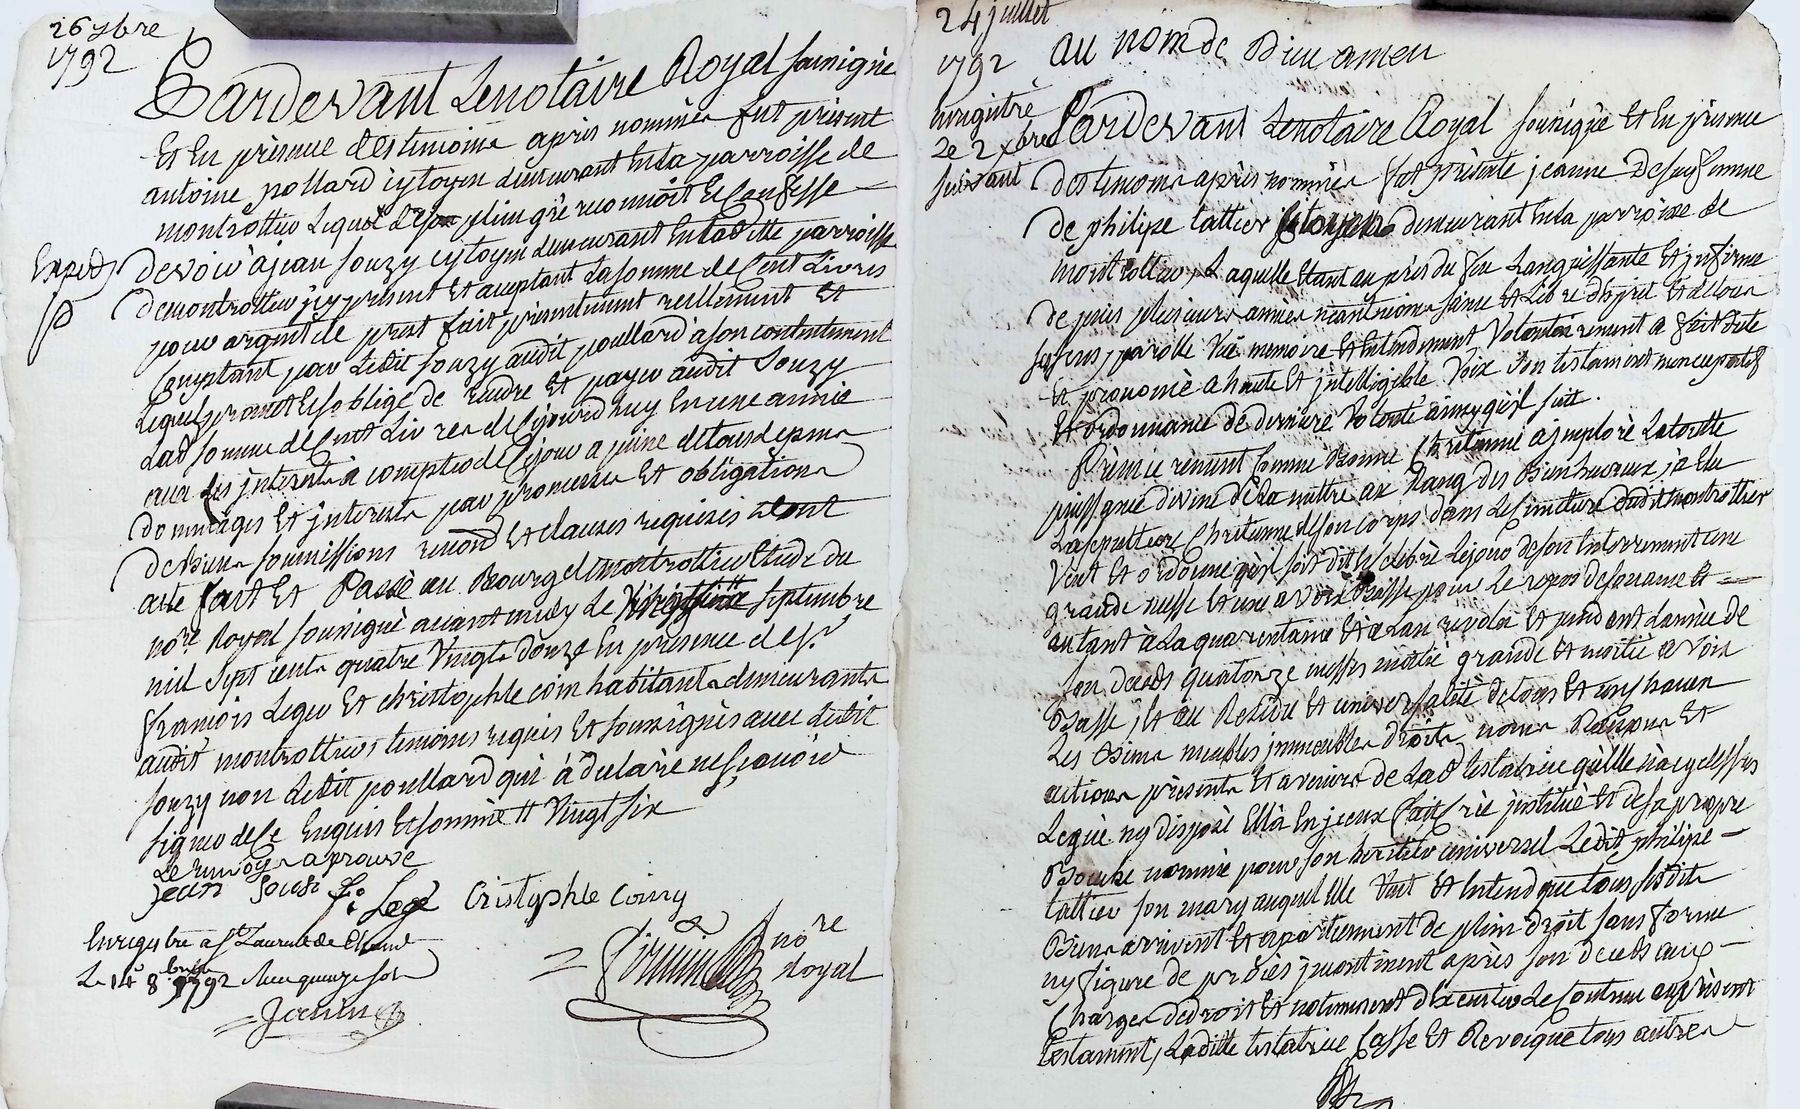 26 7bre
1792
Pardevant Lenotaire Royal sousigné
Et En présence destemoins après nommés fut présent
antoine pollard cytoyen demeurant En la parroisse de
montrottier Lequel deson plein gré reconnoit Et Confesse
Expedᵉ devoir à jean souzy cytoyen demeurant En ladite parroisse
demontrottier jcy présent Et acceptant La somme de Cent Livres
pour argent de prest fait présentement réellement Et
Comptant par Ledit souzy audit poullard a son contentement
Lequel promet Et soblige de rendre Et payer audit Souzy
Lad somme de Cent Livres de Cejourdhuy En une année
avec les jnterests à compter de Cejour a peine detous depens
dommages Et jnterests par promesses Et obligations
de Biens soumissions renond Et clauses requises dont
acte fait Et Passé au Bourg de montrottier Etude du
nore Royal sousigné avant midy Le septembre
mil sept cents quatre Vingts douze En présence de sr
françois Leger Et christophle coin habitants demeurants
audit montrottier, temoins requis Et soussignés avec Ledit
souzy non Ledit poullard qui à déclaré ne sçavoir
signer de Ce Enquis Et sommé # Vingt six
Le renvoy aprouvé
Jean Souzi Legé Cristophle Coiny
nore
Royal
Enregistré a St Laurent de Cham
Le 14 8bre 1792 Reçu quinze sols
Janin
24 juillet
1792
au nom de Dieu amen
Enregistré
Le 2 xbre
suivant
Pardevant Lenotaire Royal sousigné Et En présence
des temoins après nommés fut présente jeanne Dufuy femme
de philipe lattier demeurant En la parroisse de
montrottier, Laquelle Etant au près du feu Languissante Et jnfirme
de puis plusieurs années néantmoins saine Et Libre desprit Et de tous
ses sens, parolle Vüe memoire Et Entendement Volontairement a fait dicté
Et prononcé a haute Et jntelligible Voix son testament noncupatif
Et ordonnance de dernière Volonté ainsy qu'il suit.
Premièrement Comme Bonne Chrétienne a jmploré La toutte
puissance divine de La mettre au Rang des Bienheureux, a Elu
La sepulture Chretienne de son Corps dans Le Cimetière dudit montrottier
Veut Et ordonne qu'il soit dit Et celebré Lejour de son Enterrement une
grande messe Et une a Voix Basse pour Le repos de son ame Et
autant à La quarentaine Et a Lan revolu Et pendant L'année de
son décès quatorze messes moitié grande Et moitié a Voix
Basse, Et au Residu Et universalité de tous Et uns chacun
Les Biens meubles jmmeubles droits noms Raisons Et
actions présents Et avenirs de Lad testatrice qu'elle n'a cydessus
Legué ny disposé Ellà En jceux fait Créé jnstitué Et de sa propre
Bouche nommé pour son heritier universel Ledit philipe
lattier son mary auquel Elle Veut Et Entend que tous sesdits
Biens arrivent Et apartiennent de plein droit sans forme
ny figure de procès jncontinent après son décès aux
Charges de droit Et notamment d'Executer Le Contenu au présent
testament, Ladite testatrice Casse Et Revoque tous autres